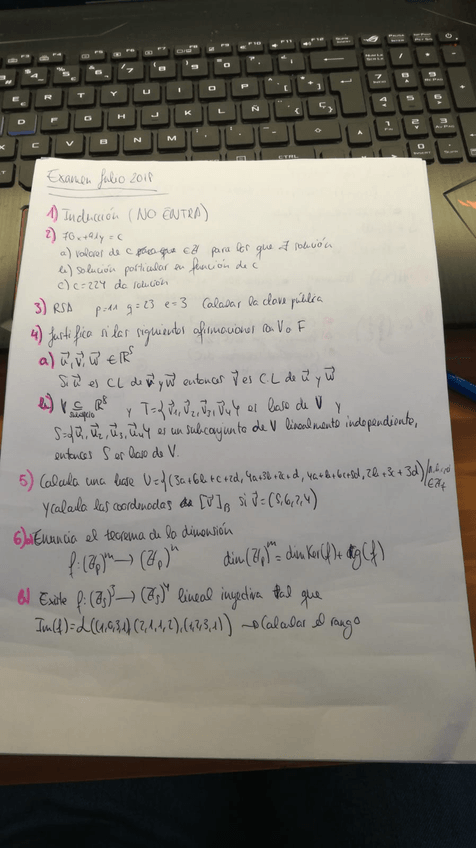 Examen Julio 2018
1) Inducción (NO ENTRA)
2) 70x+42y=c
a) valores de c ∈ Z para los que ∃ solución
b) solución particular en función de c
c) c=224 da solución
3) RSA p=11 q=23 e=3 Calcular la clave pública
4) Justifica si las siguientes afirmaciones son V o F
a) u⃗, v⃗, w⃗ ∈ R⁵
Si u⃗ es C.L de v⃗ y w⃗ entonces v⃗ es C.L de u⃗ y w⃗
b) V ⊆ R⁸ y T={v⃗₁, v⃗₂, v⃗₃, v⃗₄} es base de V y
S={u⃗₁, u⃗₂, u⃗₃, u⃗₄} es un subconjunto de V linealmente independiente,
entonces S es base de V.
5) Calcula una base U={(3a+6b+c+2d, 4a+3b+2c+d, 4a+b+6c+5d, 2b+3c+3d)/
y calcula las coordenadas de [v⃗]B si v⃗=(5,6,2,4)
6)a) Enuncia el teorema de la dimensión
f:(Zp)ᵐ→(Zp)ⁿ dim(Zp)ᵐ=dimKer(f)+rg(f)
b) Existe f:(Z5)³→(Z5)⁴ lineal inyectiva tal que
Im(f)=L((1,0,3,1)(2,1,1,2),(1,2,3,1)) → Calcular el rango